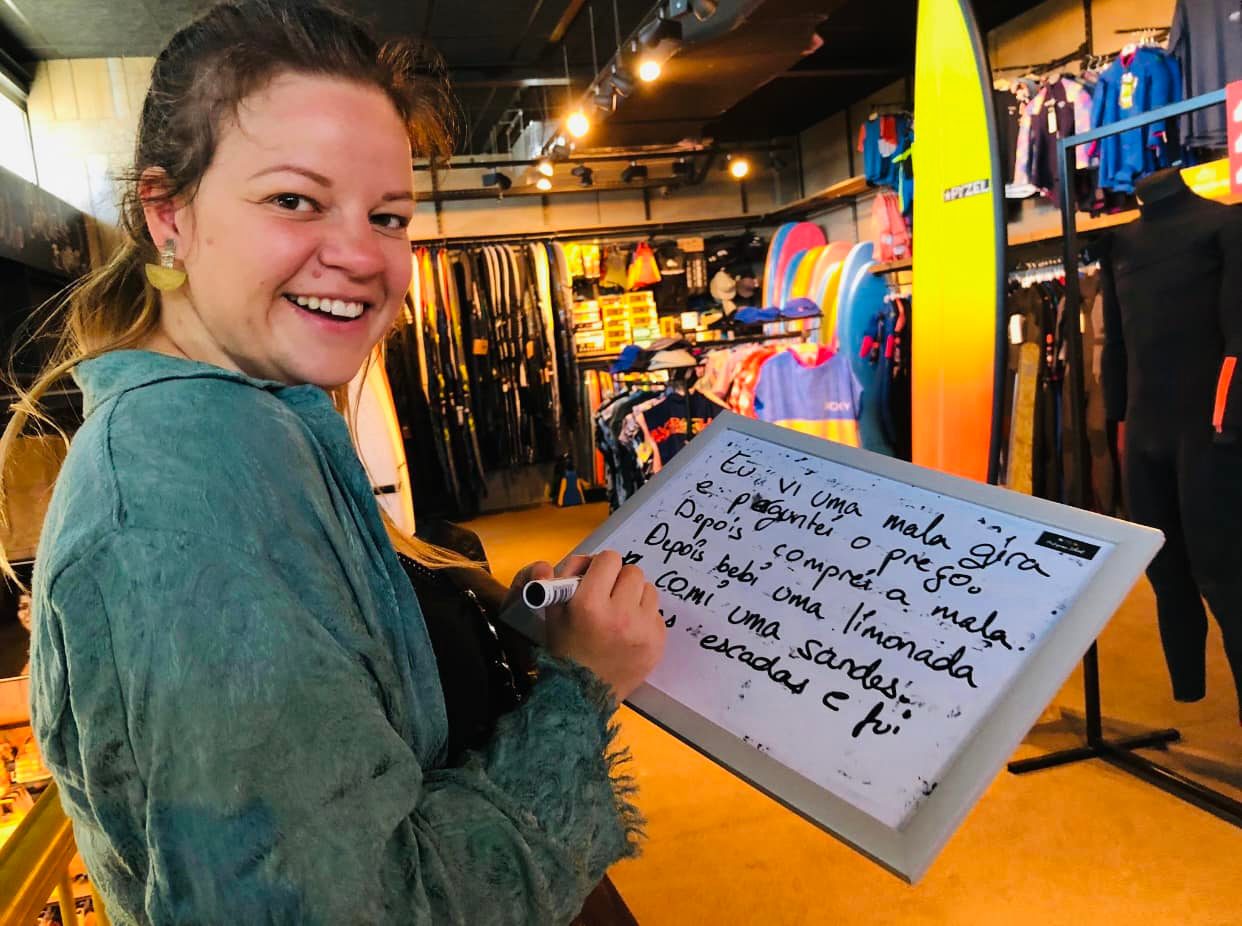 Eu vi uma mala gira
e perguntei o preço.
Depois comprei a mala.
Depois bebi uma limonada
e comi uma sandes.
escadas e fui
PYZEL
ROXY